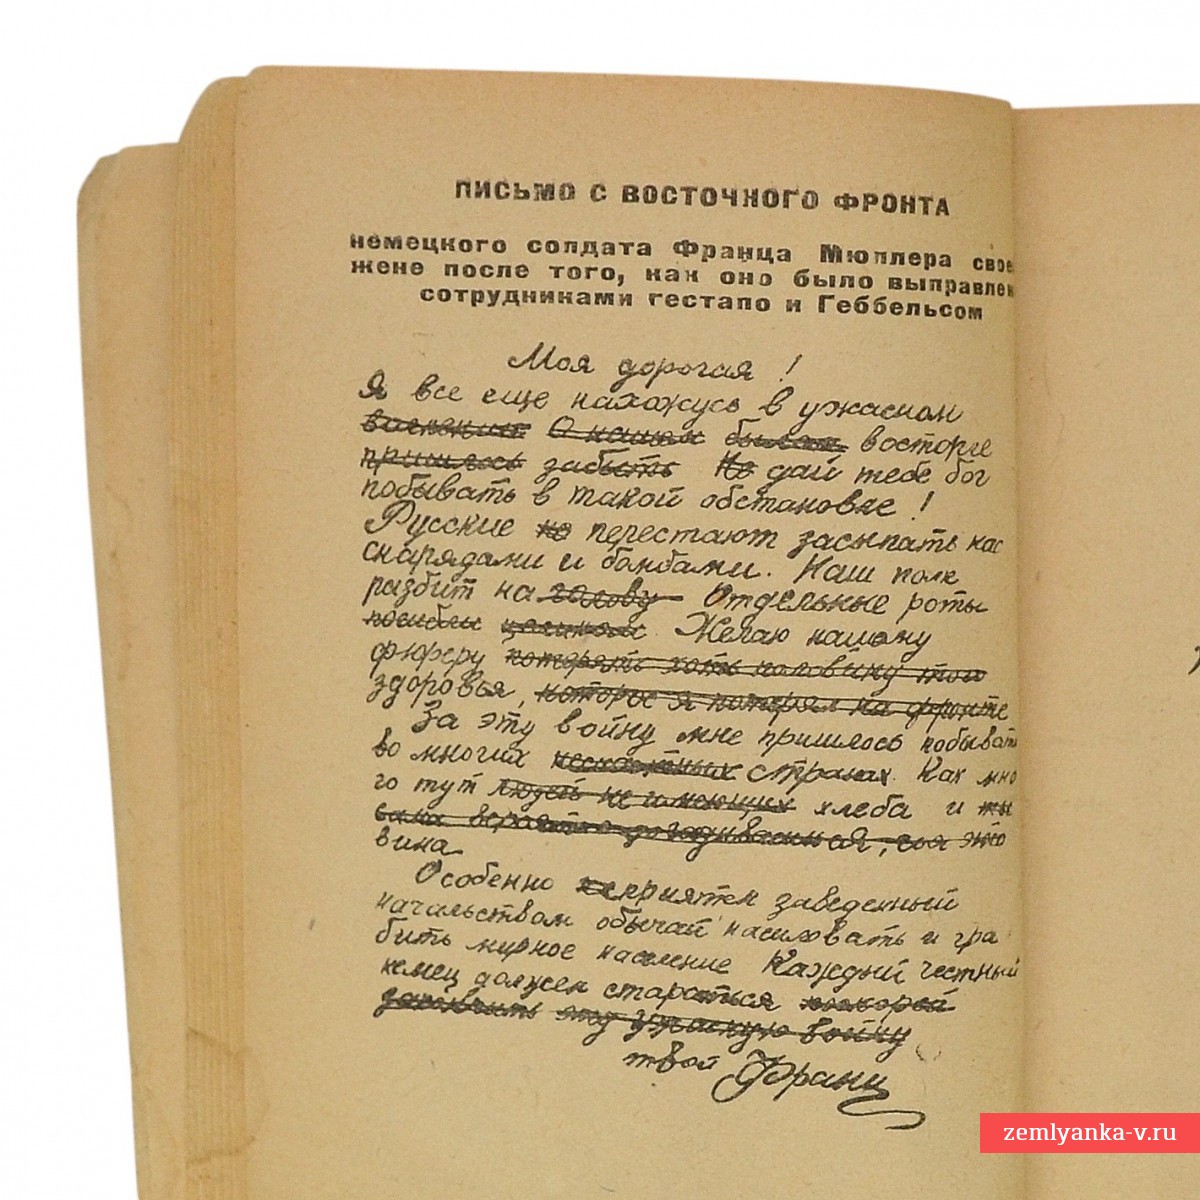 ПИСЬМО С ВОСТОЧНОГО ФРОНТА
немецкого солдата Франца Мюллера свое
жене после того, как оно было выправлен
сотрудниками гестапо и Геббельсом
Моя дорогая!
Я все еще нахожусь в ужасном
О нашем былом восторге
пришлось забыть Не дай тебе бог
побывать в такой обстановке!
Русские не перестают засыпать нас
снарядами и бомбами. Наш полк
разбит на голову Отдельные роты
погибли целиком. Желаю нашему
фюреру потерять хоть половину того
здоровья, которое я потерял на фронте
За эту войну мне пришлось побывать
во многих несчастных странах. Как мно
го тут людей не имеющих хлеба и ты
сама вероятно догадываешься, чья это
вина
Особенно неприятен заведенный
начальством обычай насиловать и гра
бить мирное население Каждый честный
немец должен стараться поскорей
закончить эту ужасную войну
твой Франц
zemlyanka-v.ru